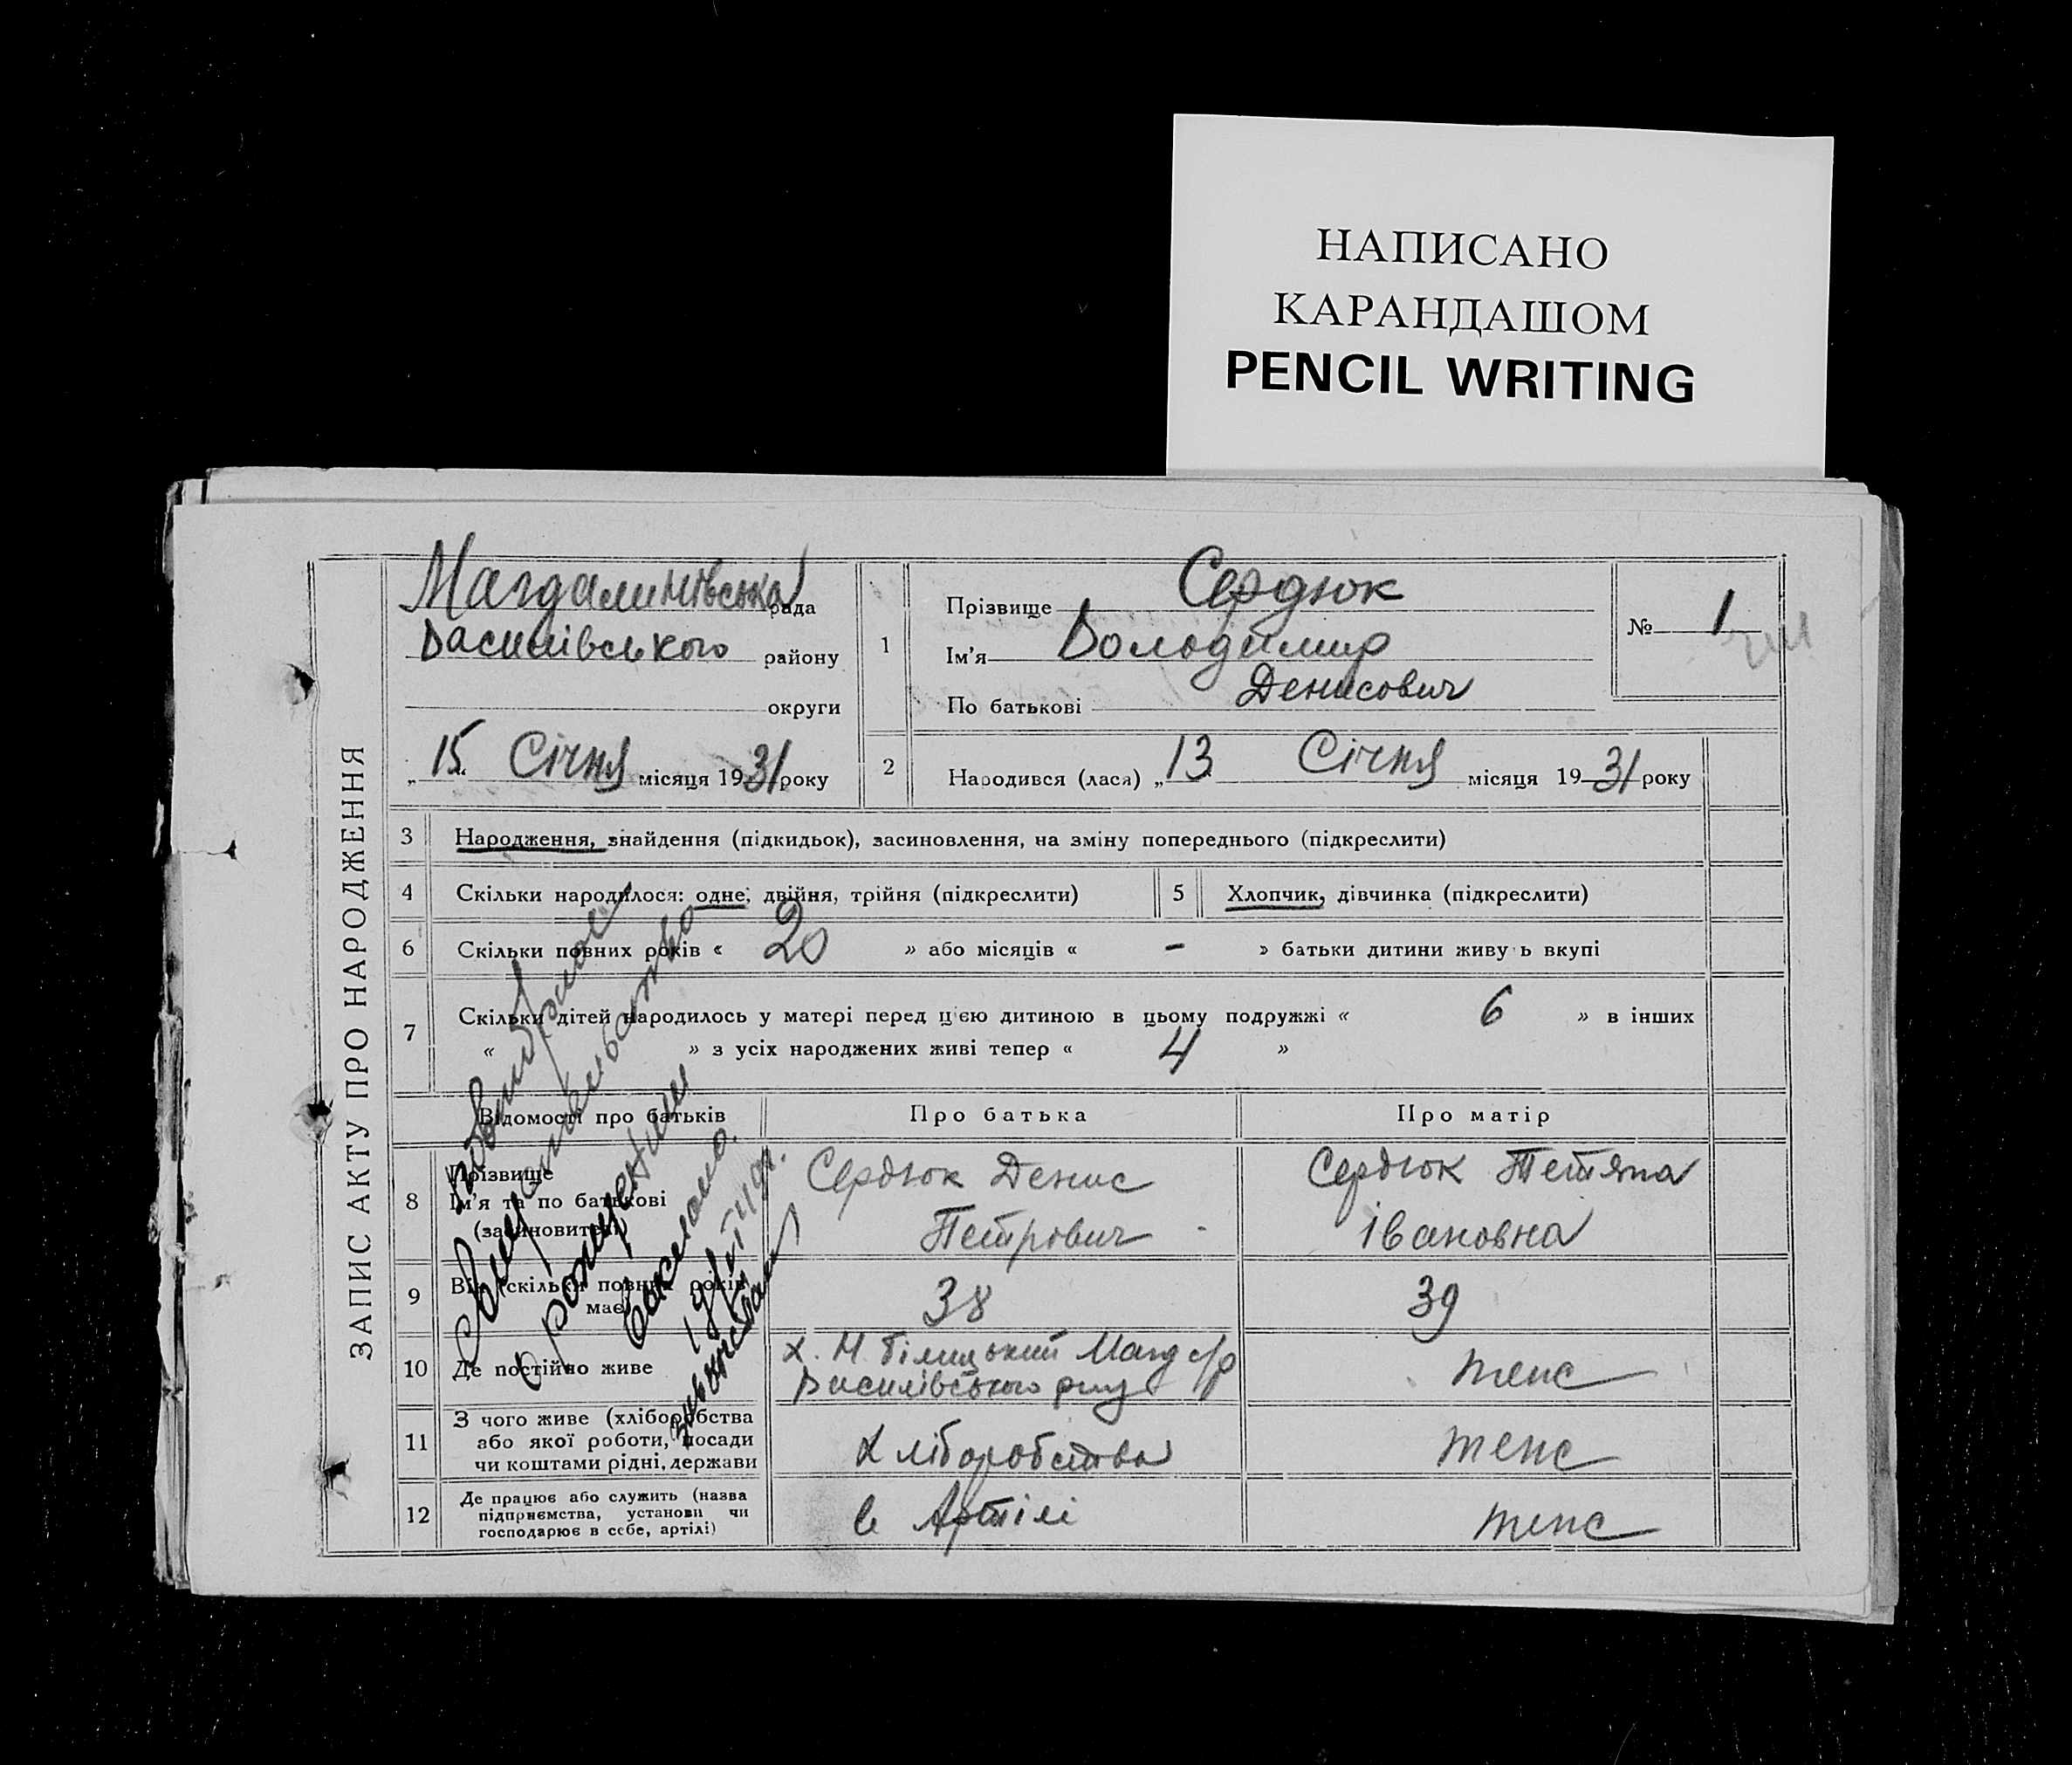 НАПИСАНО
КАРАНДАШОМ
PENCIL WRITING
ЗАПИС АКТУ ПРО НАРОДЖЕННЯ
Магдалинівська рада
Василівського району
округи
„15“ Січня місяця 1931 року
1
Прізвище Сердюк
Ім'я Володимир
По батькові Денисович
№ 1
2
Народився (лася) „13 Січня місяця 1931 року
3 Народження, знайдення (підкидьок), засиновлення, на зміну попереднього (підкреслити)
4 Скільки народилося: одне, двійня, трійня (підкреслити)
5 Хлопчик, дівчинка (підкреслити)
6 Скільки повних років « 20 » або місяців « - » батьки дитини живу ь вкупі
7 Скільки дітей народилось у матері перед цією дитиною в цьому подружжі « 6 » в інших
« » з усіх народжених живі тепер « 4 »
Відомості про батьків
Про батька
Про матір
8 Прізвище
Ім'я та по батькові
(засиновителі)
Сердюк Денис
Петрович
Сердюк Тетяна
Івановна
9 Вік (скільки повних років
має)
38
39
10 Де постійно живе
х. М. Білицький Магд с/р
Василівського
тепс
11 З чого живе (хліборобства
або якої роботи, посади
чи коштами рідні, держави
Хліборобства
тепс
12 Де працює або служить (назва
підприємства, установи чи
господарює в себе, артілі)
в Артілі
тепс